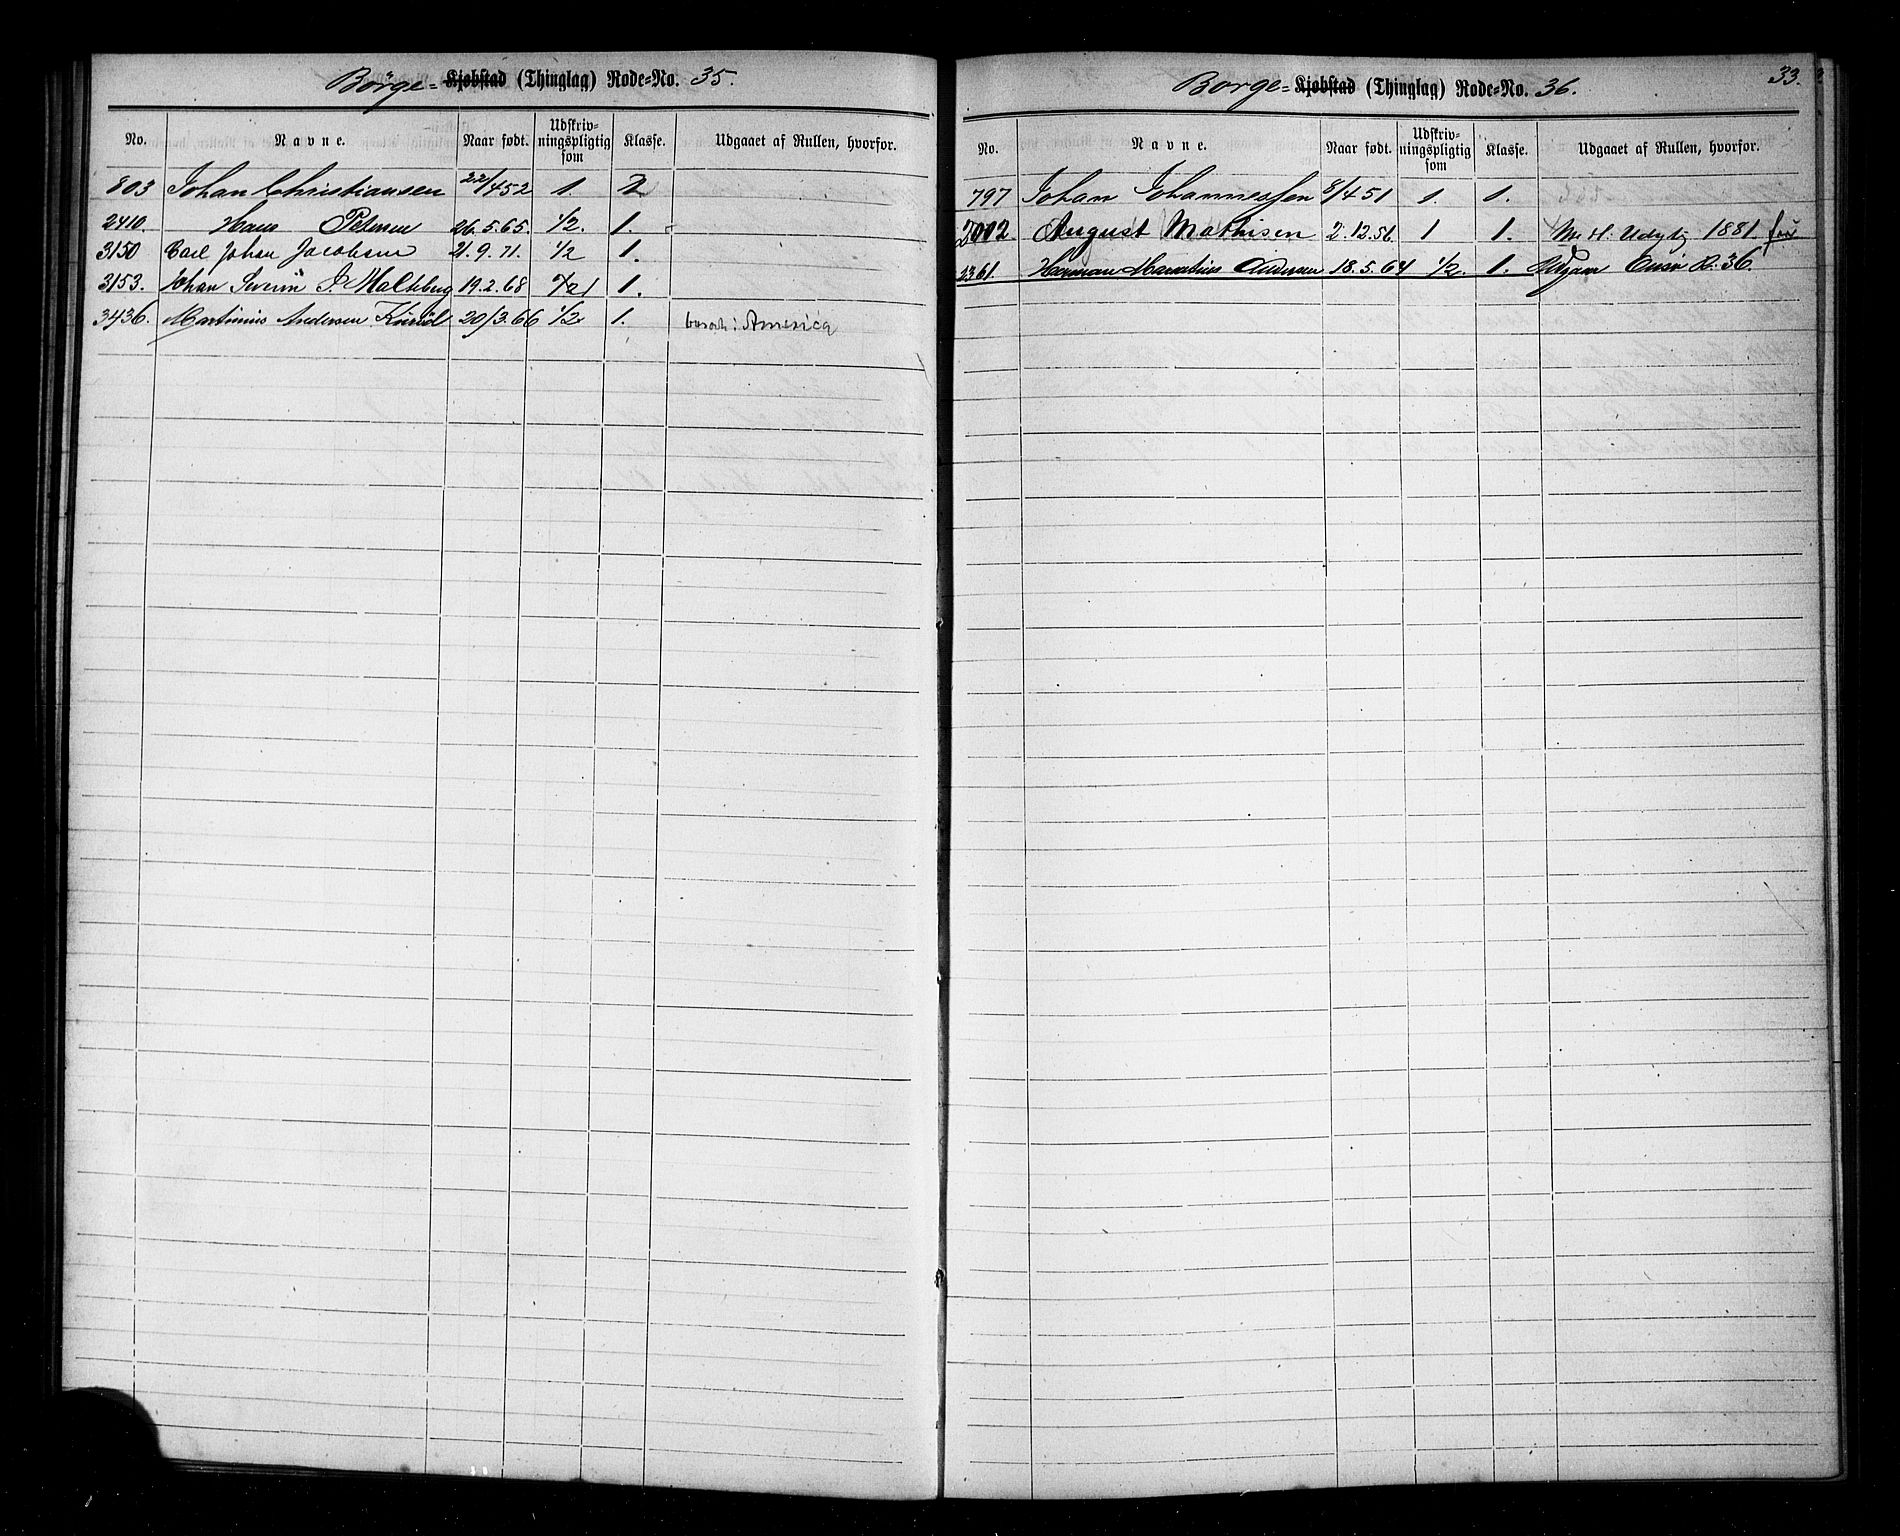 Börge= Kjøbstad (Thinglag) Rode=No. 35.
No. Navne. Naar født. Udskriv-ningspligtig som Klasse. Udgaaet af Rullen, hvorfor.
803 Johan Christiansen 22/4 52 1. 2
2410. Hans Petersen 26.5.65. 1/2. 1.
3150 Carl Johan Jacobsen 21.9.71. 1/2 1.
3153. Johan Severin J. 19.2.68 1.
3436. Martinius Andersen 20/3.66 1/2 1. America
33.
Borge= Kjøbstad (Thinglag) Rode=No. 36.
No. Navne. Naar født. Udskriv-ningspligtig som Klasse. Udgaaet af Rullen, hvorfor.
797 Johan Johannessen 8/4 51 1. 1.
2002 August Mathisen 2.12.56. 1 1. 1881
2361 Herman Andersen 18.5.64 1/2. 1. R. 36.